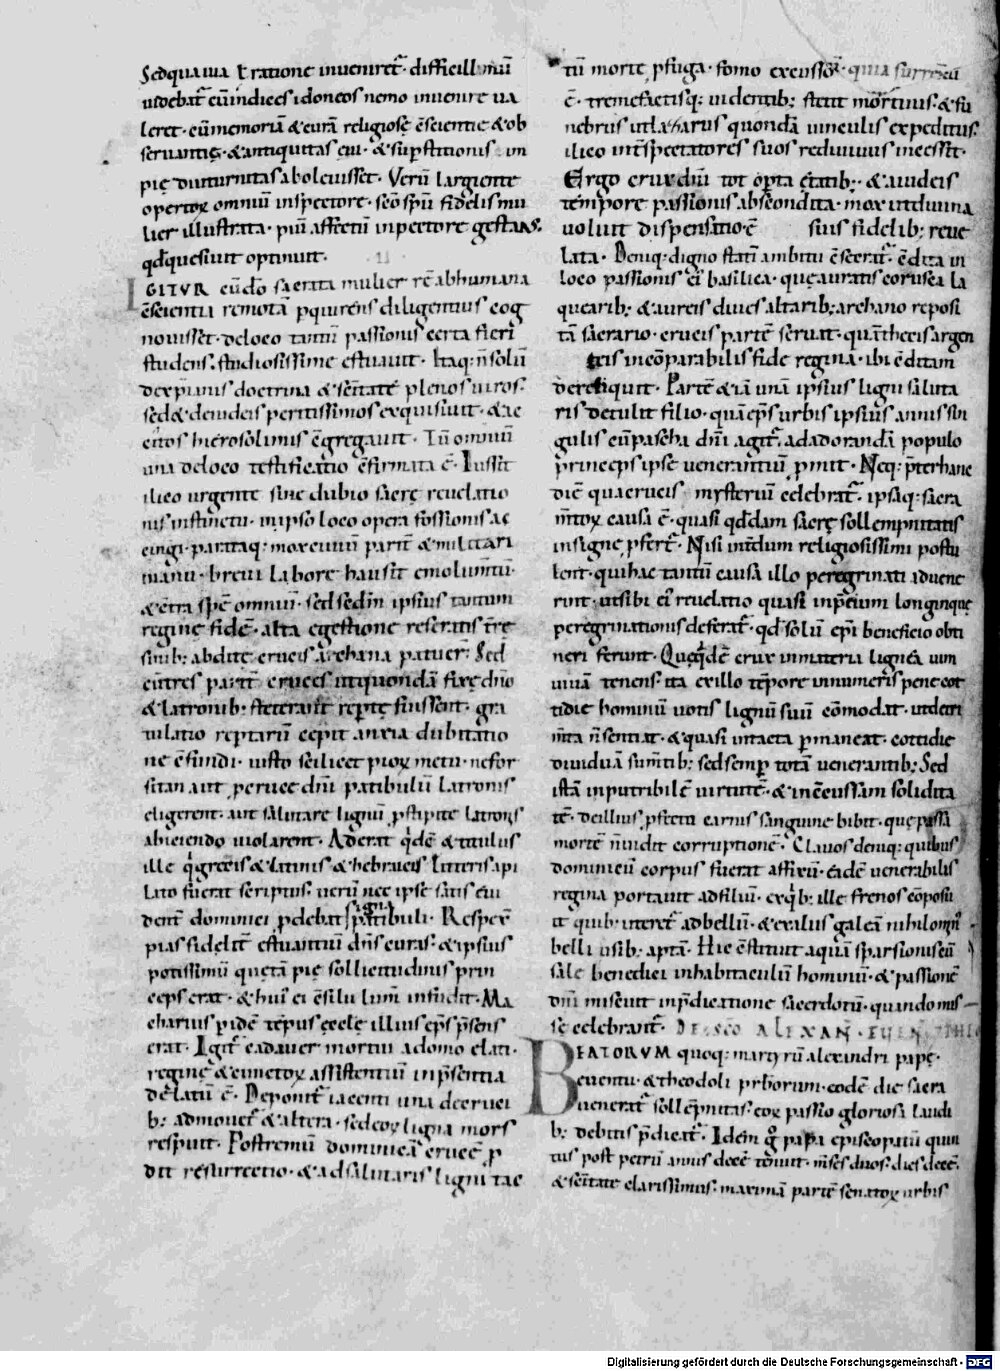 Sed qua uia t ratione inueniret᷑· difficillimū
uidebat᷑ cū indices idoneos nemo inuenire ua
leret· cū memoriā & curā religiosę ꝯscientię & ob
seruantię· & antiquitas ęui· & sup̄stitionis im
pię diuturnitas aboleuisset· Verū largiente
omniū inspectore· sc̄o sp̄u fidelis mu
lier illustrata· piū affectū in pectore gestans·
qd̄ quesiuit optinuit·
IGITVR cū d̄o sacrata mulier rē ab humana
ꝯscientia remotā ꝑquirens diligentius cog
nouisset· de loco tantū passionis certa fieri
studens· studiosissime estuauit· Itaq: n̄ solū
doctrina & sc̄itate plenos uiros·
sed & de iudeis peritissimos exquisiuit· & ac
citos hierosolimis ꝯgregauit· Tū omniū
una de loco testificatio ꝯfirmata ē· Iussit
ilico urgente sine dubio sacrę reuelatio
nis instinctu· in ipso loco opera fossionis ac
cingi· parataq: mox ciuiū parit̄ & militari
manu· breui labore hausit emolum̄tū·
& ꝯtra spē omniū· sed sedm̄ ipsius tantum
regine fidē· alta egestione reseratis t̄rę
sinib: abditę crucis archana patuer̄· Sed
cū tres parit̄ cruces ut quondā fixę dn̄o
& latronib: steterant rep̄tę fuissent· gra
tulatio rep̄tarū cepit anxia dubitatio
ne ꝯfundi· iusto scilicet pioꝝ metu· ne for
sitan aut ꝑ cruce dn̄i patibulū latronis
eligerent· aut salutare lignū ꝓ stipite latronis
abiciendo uiolarent· Aderat qͥdē & titulus
ille qͥ grecis & latinis & hebraicis litteris a pi
lato fuerat scriptus· uerū nec ipse satis eui
dent̄ dominici ꝓdebat signū patibuli· Respex̄
pias fidelit̄ estuantiū dn̄s curas· & ipsius
potissimū quę tā pię sollicitudinis prin
ceps erat· & hui᷒ ei ꝯsilii lum̄ infudit· Ma
charius pidē tēpus ęcclę illius ep̄s p̄sens
erat· Igit᷑ cadauer mortui a domo elati·
reginę & cunctoꝝ assistentiū in p̄sentia
delatū ē· Deponit᷑ iacenti una de cruci
b: admouet᷑ & altera· sed eoꝝ ligna mors
respuit· Postremū dominicā crucē ꝓ
dit resurrectio· & ad salutaris ligni tac
tū morte ꝓfuga· fomo excussor· quia surrectu
ē· tremefactisq: uidentib: stetit mortuus· & fu
nebris ut lazarus quondā uinculis expeditus·
ilico int̄ spectatores suos rediuiuus incessit·
Ergo crux dn̄i tot op̄ta ętatib:· & a iudeis
tempore passionis abscondita· mox ut diuina
uoluit dispensatio· ē suis fidelib: reue
lata· Deniq: digno statī ambitu ꝯsecrat᷑· ꝯdita in
loco passionis ei᷒ basilica· quę auratis corusca la
quearib: & aureis diues altarib: archano reposi
tā sacrario· crucis partē seruat· quā thecis argen
teis incōparabilis fide regina· ibi ꝯditam
dereliquit· Partē & iā unā ipsius ligni saluta
ris detulit filio· quā ep̄s urbis ipsius annis sin
gulis cū pascha dn̄i agit᷑· ad adorandā populo
princeps ipse uenerantiū ꝓmit· Neq: p̄ter hanc
diē qua crucis mysteriū celebrat᷑· ipsaq: sacra
m̄toꝝ causa ē· quasi qd̄dam sacrę sollempnitatis
insigne ꝓfert᷑· Nisi int̄dum religiosissimi postu
lent· qui hac tantū causa illo peregrinati aduene
rint· ut sibi ei᷒ reuelatio quasi in p̄cium longinquę
peregrinationis deferat᷑· qd̄ solū ep̄i beneficio obti
neri ferunt· Quę qͥdē crux in materia lignea uim
uiuā tenens· ita ex illo tēpore innumeris pene cot
tidie hominū uotis lignū suū cōmodat· ut detri
m̄ta n̄ sentiat· & quasi intacta ꝑmaneat· cottidie
diuiduā sum̄tib: sed semꝑ totā uenerantib: Sed
istā inputribilē uirtutē· & inꝯcussam solidita
tē· de illius ꝓfecto carnis sanguine bibit· quę passa
mortē n̄ uidit corruptionē· Clauos deniq: quibus
dominicū corpus fuerat affixū· eidē uenerabilis
regina portauit ad filiū· ex qͥb: ille frenos cōposu
it quib: utet᷑ ad belliū· & ex aliis galeā nihilomin᷒
belli usib: aptā· Hic ꝯstituit aquā sparsionis cū
sale benedici in habitaculū hominū· & passionē
dn̄i miscuit in p̄dicatione sacerdotū· quando mis
sę celebrant᷑· DE SC̄O ALEXAN·
BEATORVM quoq: martyrū alexandri papę·
euentii· & theodoli prb̄orum· eodē die sacra
uenerat᷑ sollēpnitas· eoꝝ passio gloriosa laudi
b: debitis p̄dicat᷑· Idem g̊ papa episcopatū quin
tus post petrū annis decē tenuit· m̄ses duos· dies decē·
& sc̄itate clarissimus· maximā partē senatoꝝ urbis
Digitalisierung gefördert durch die Deutsche Forschungsgemeinschaft - DFG